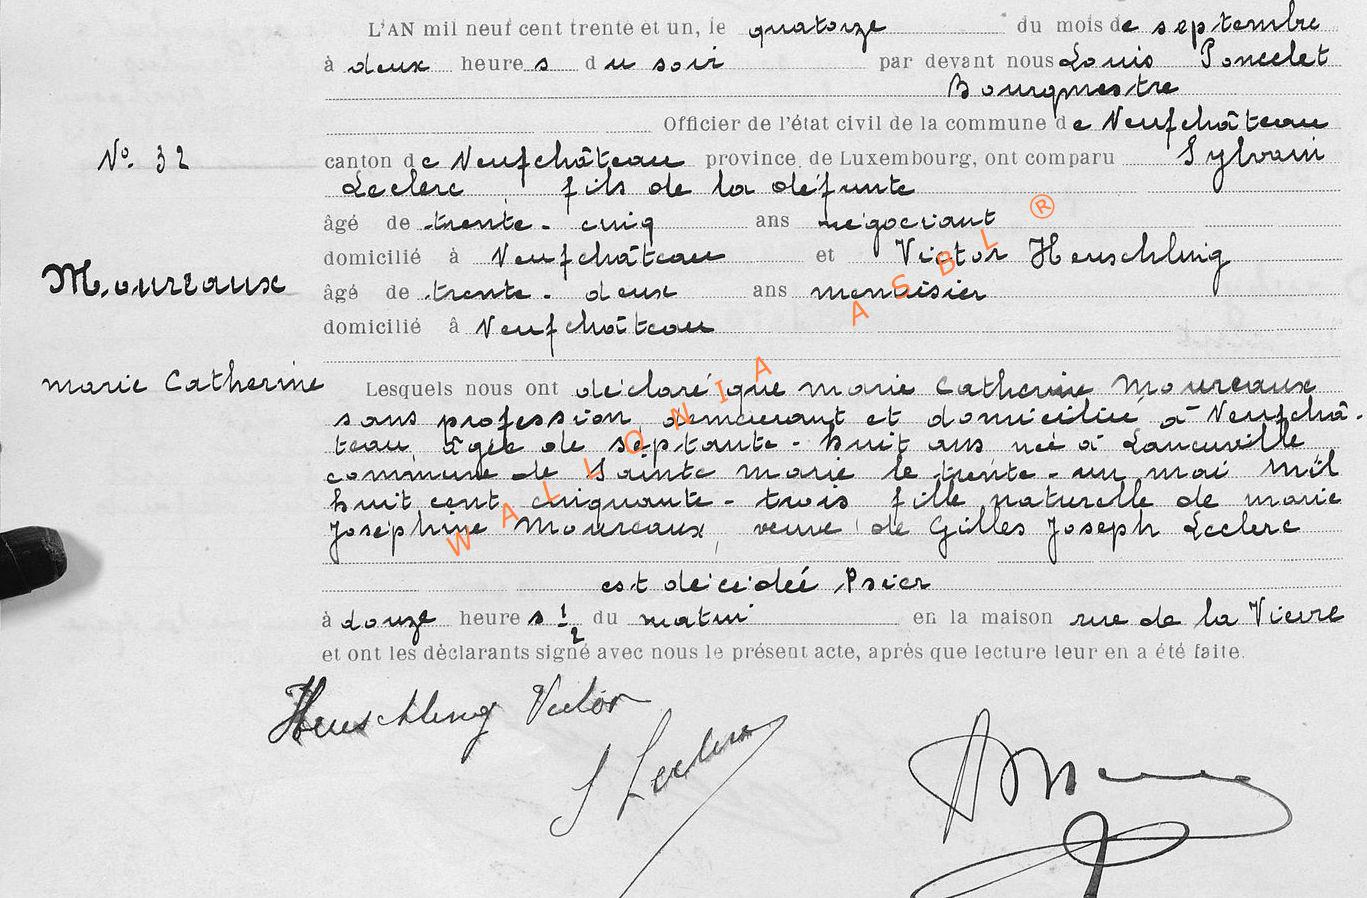 L'AN mil neuf cent trente et un, le quatorze du mois de septembre
à deux heures du soir par devant nous Louis Poncelet
Bourgmestre
Officier de l'état civil de la commune de Neufchâteau
N° 32
canton de Neufchâteau province de Luxembourg, ont comparu Sylvain
Leclerc fils de la défunte
âgé de trente-cinq ans négociant
domicilié à Neufchâteau et Victor Heuschling
Moureaux
âgé de trente-deux ans menuisier
domicilié à Neufchâteau
marie Catherine
Lesquels nous ont déclaré que marie Catherine Moureaux
sans profession, demeurant et domiciliée à Neufchâ-
teau, âgée de septante-huit ans née à Laneuville
commune de Sainte marie le trente-un mai mil
huit cent cinquante-trois fille naturelle de marie
Joséphine Moureaux, veuve de Gilles Joseph Leclerc
est décédée, hier
à douze heures 1/2 du matin en la maison rue de la Vierre
et ont les déclarants signé avec nous le présent acte, après que lecture leur en a été faite.
Heuschling Victor
S Leclerc
WALLONIA ASBL ®